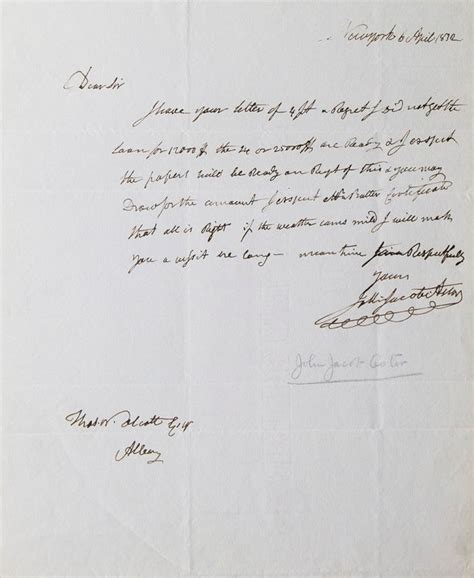 Newyork 6 April 1832
Dear Sir
I have your letter of 4 & Regret I did not get the
Loan for 12000 $ the 24 or 25000 $ are Ready & I expect
the papers will be Ready on Rcpt of this & you may
Draw for the amount I expect Mr Rutter Certificate
that all is Right if the weather comes mild I will make
you a visit ere long — meantime Respectfully
yours
John Jacob Astor
John Jacob Astor
Thos. W. Olcott Esqr
Albany